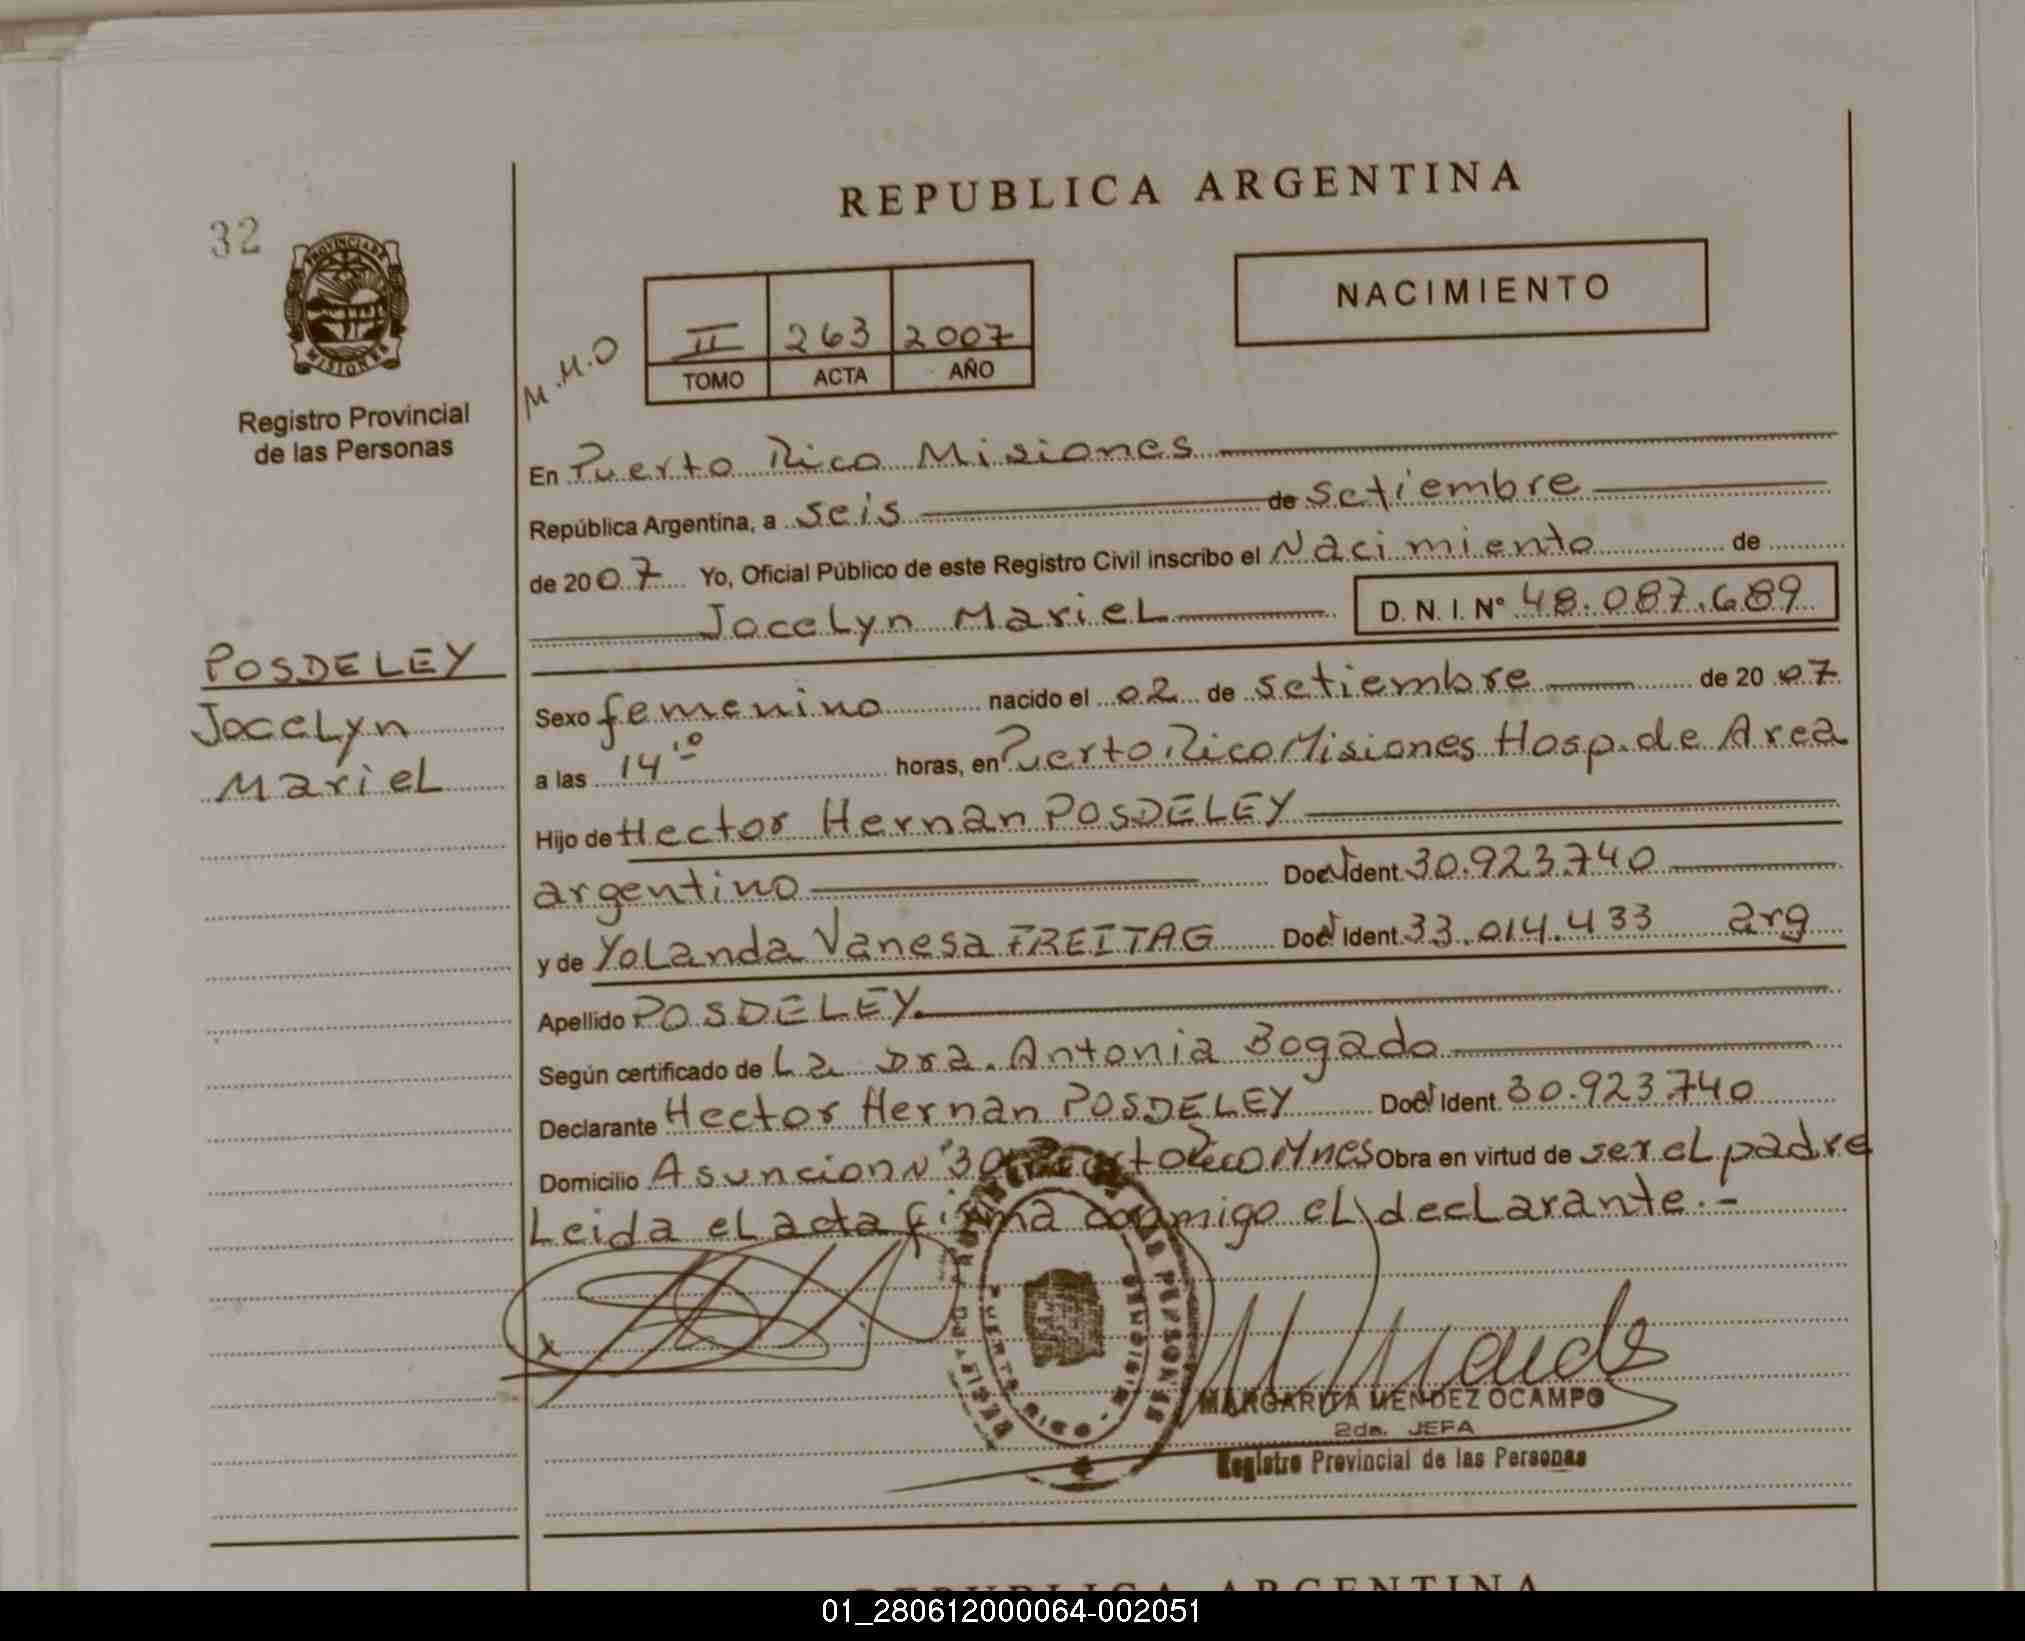 REPUBLICA ARGENTINA
32
PROVINCIA DE
MISIONES
Registro Provincial
de las Personas
NACIMIENTO
M.M.O
II 263 2007
TOMO ACTA AÑO
En Puerto Rico Misiones
República Argentina, a seis de setiembre
de 2007 Yo, Oficial Público de este Registro Civil inscribo el Nacimiento de
Jocelyn Mariel D. N. I. Nº 48.087.689
POSDELEY
Jocelyn
Mariel
Sexo femenino nacido el 02 de setiembre de 2007
a las 14,10 horas, en Puerto Rico Misiones Hosp. de Area
Hijo de Hector Hernan POSDELEY
argentino Doc. Ident. 30.923.740
y de Yolanda Vanesa FREITAG Doc. Ident. 33.014.433 arg
Apellido POSDELEY
Según certificado de La Dra. Antonia Bogado
Declarante Hector Hernan POSDELEY Doc. Ident. 30.923.740
Domicilio Asuncion Nº Puerto Rico Mnes Obra en virtud de ser el padre
Leida el acta firma conmigo el declarante.-
x
MARGARITA MENDEZ OCAMPO
2da. JEFA
Registro Provincial de las Personas
REPUBLICA ARGENTINA
01_280612000064-002051